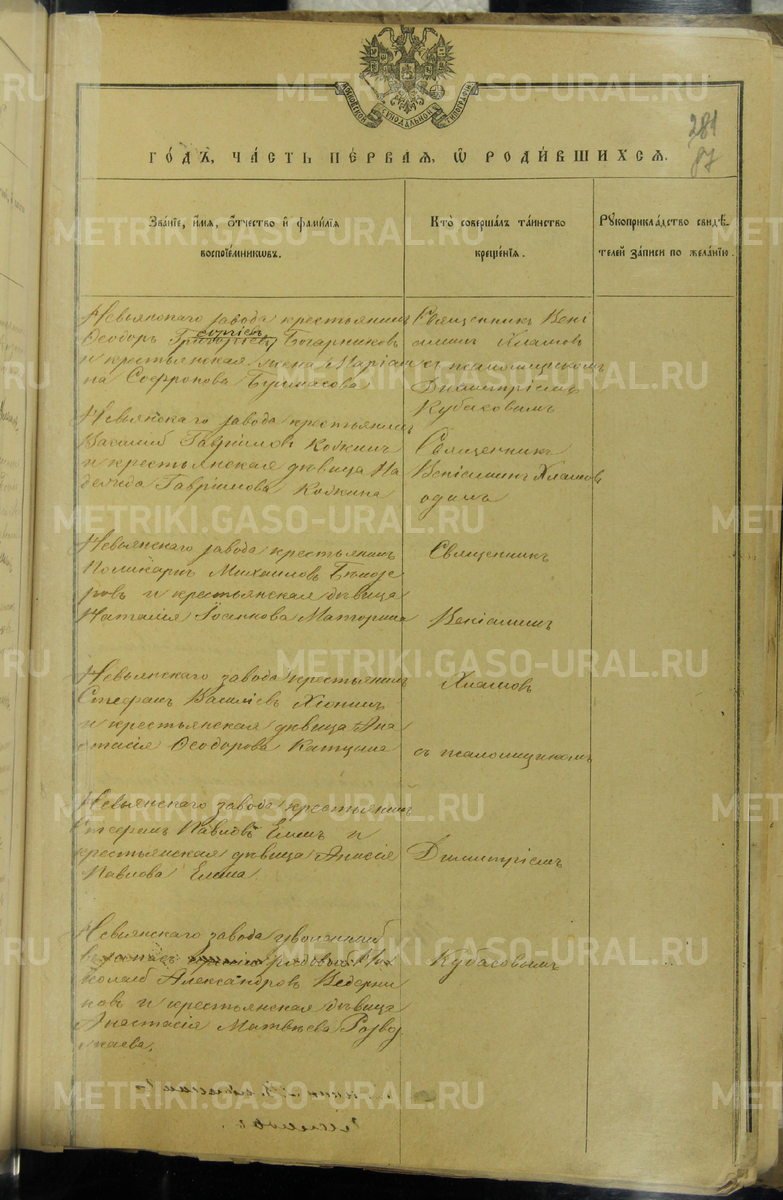 МОСКОВСКОЙ СѴНОДАЛЬНОЙ ТИПОГРАФІИ
281
87
ГОДЪ, ЧАСТЬ ПЕРВАЯ, Ѡ РОДИВШИХСЯ.
Званїе, имя, отчество и фамилїя воспрїемниковъ.
Кто совершалъ таинство крещенїя.
Рукоприкладство свидѣтелей записи по желанїю.
Невьянскаго завода крестьянинъ
Ѳеодоръ Григорьевъ Богарниковъ
и крестьянская жена Маріам
на Софронова Бурмасова
Священникъ Вені
аминъ Хламовъ
съ псаломщикомъ
Димитріемъ
Кубасовымъ
Невьянскаго завода крестьянинъ
Василій Гавріиловъ Кожинъ
и крестьянская дѣвица На
дежда Гавріилова Кожина
Священникъ
Веніаминъ Хламовъ
одинъ
Невьянскаго завода крестьянинъ
Поликарпъ Михаиловъ Бѣлозе
ровъ и крестьянская дѣвица
Наталія Іоаннова Маторина
Священникъ
Веніаминъ
Невьянскаго завода крестьянинъ
Стефанъ Василіевъ Хіонинъ
и крестьянская дѣвица Ана
стасія Ѳеодорова Катцына
Хламовъ
съ псаломщикомъ
Невьянскаго завода крестьянинъ
Стефанъ Павловъ Елинъ и
крестьянская дѣвица Анисія
Павлова Елина
Димитріемъ
Невьянскаго завода уволенный
въ запасъ рядовой Ни
колай Александровъ Ведерни
ковъ и крестьянская дѣвица
Анастасія Матвѣева Развоз
жаева.
Кубасовымъ
METRIKI.GASO-URAL.RU